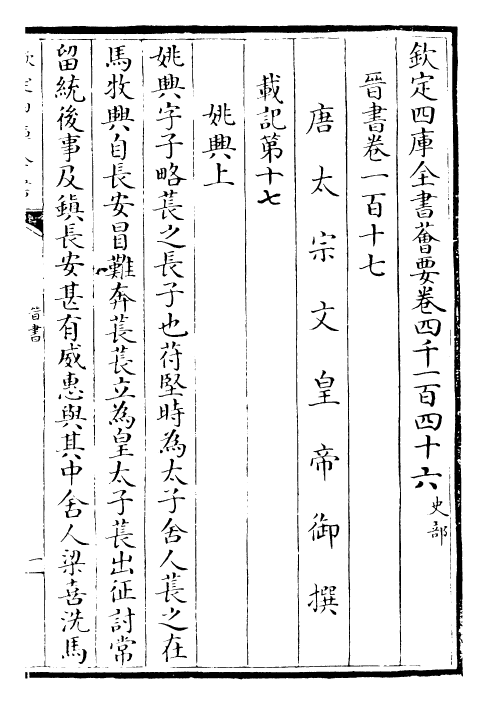 欽定四庫全書薈要卷四千一百四十六 史部
晉書卷一百十七
唐太宗文皇帝御撰
載記第十七
姚興上
姚興字子略萇之長子也苻堅時為太子舍人萇之在
馬牧興自長安冒難奔萇萇立為皇太子萇出征討常
留統後事及鎮長安甚有威惠與其中舍人梁喜洗馬
欽定四庫全書
晉書
一